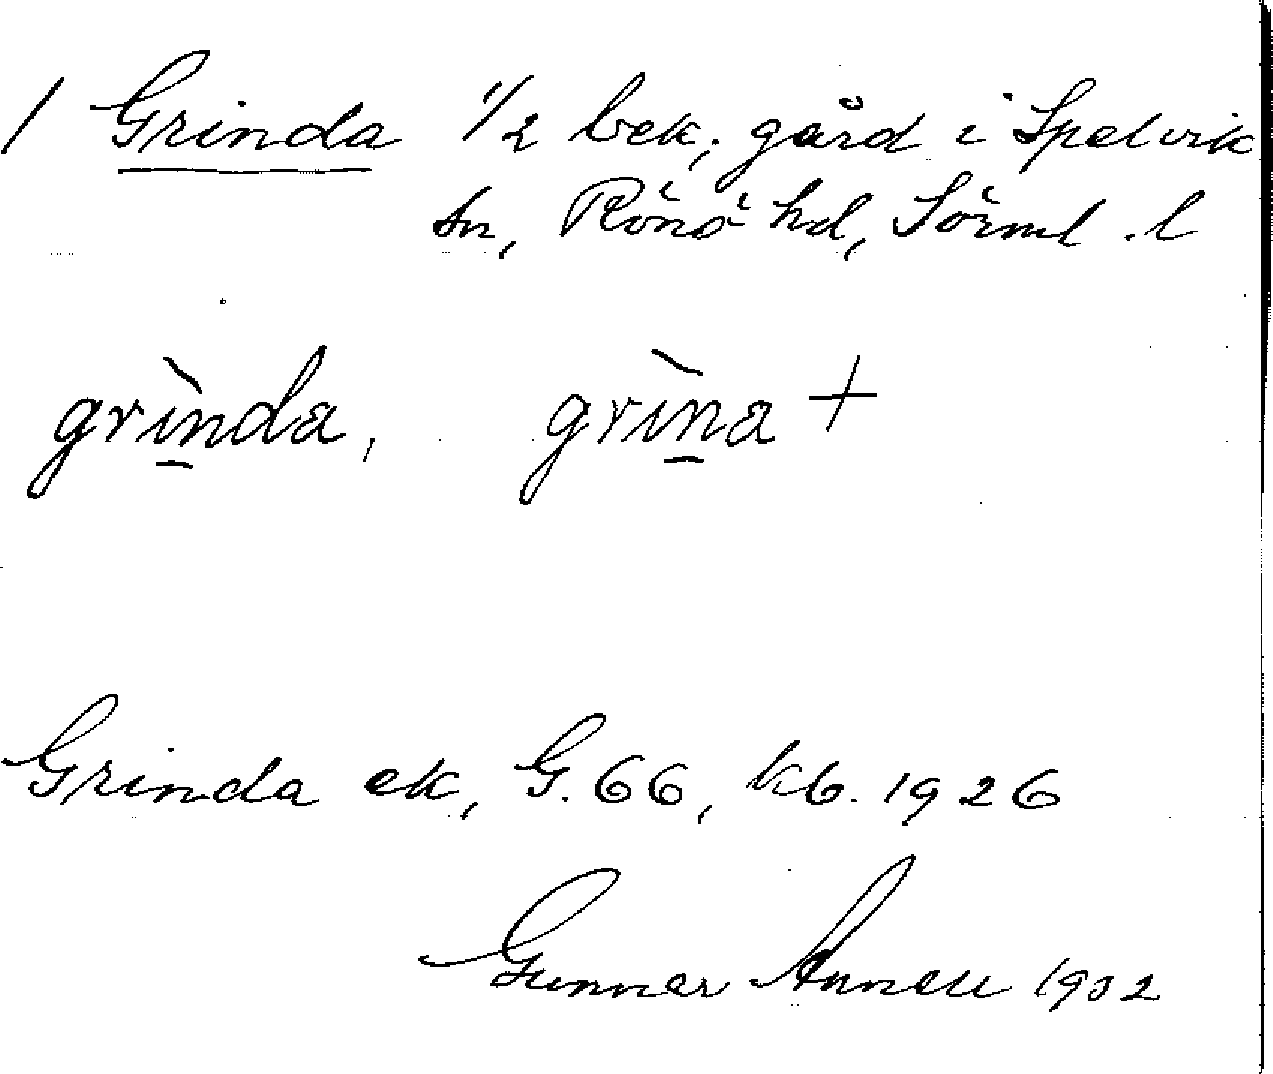 / Grinda 1/2 bek; gård i Spelvik
sn, Rönö hd, Sörml. l
grìnda, grìna +
Grinda ek, G. 66, kb. 1926
Gunnar Annell 1932